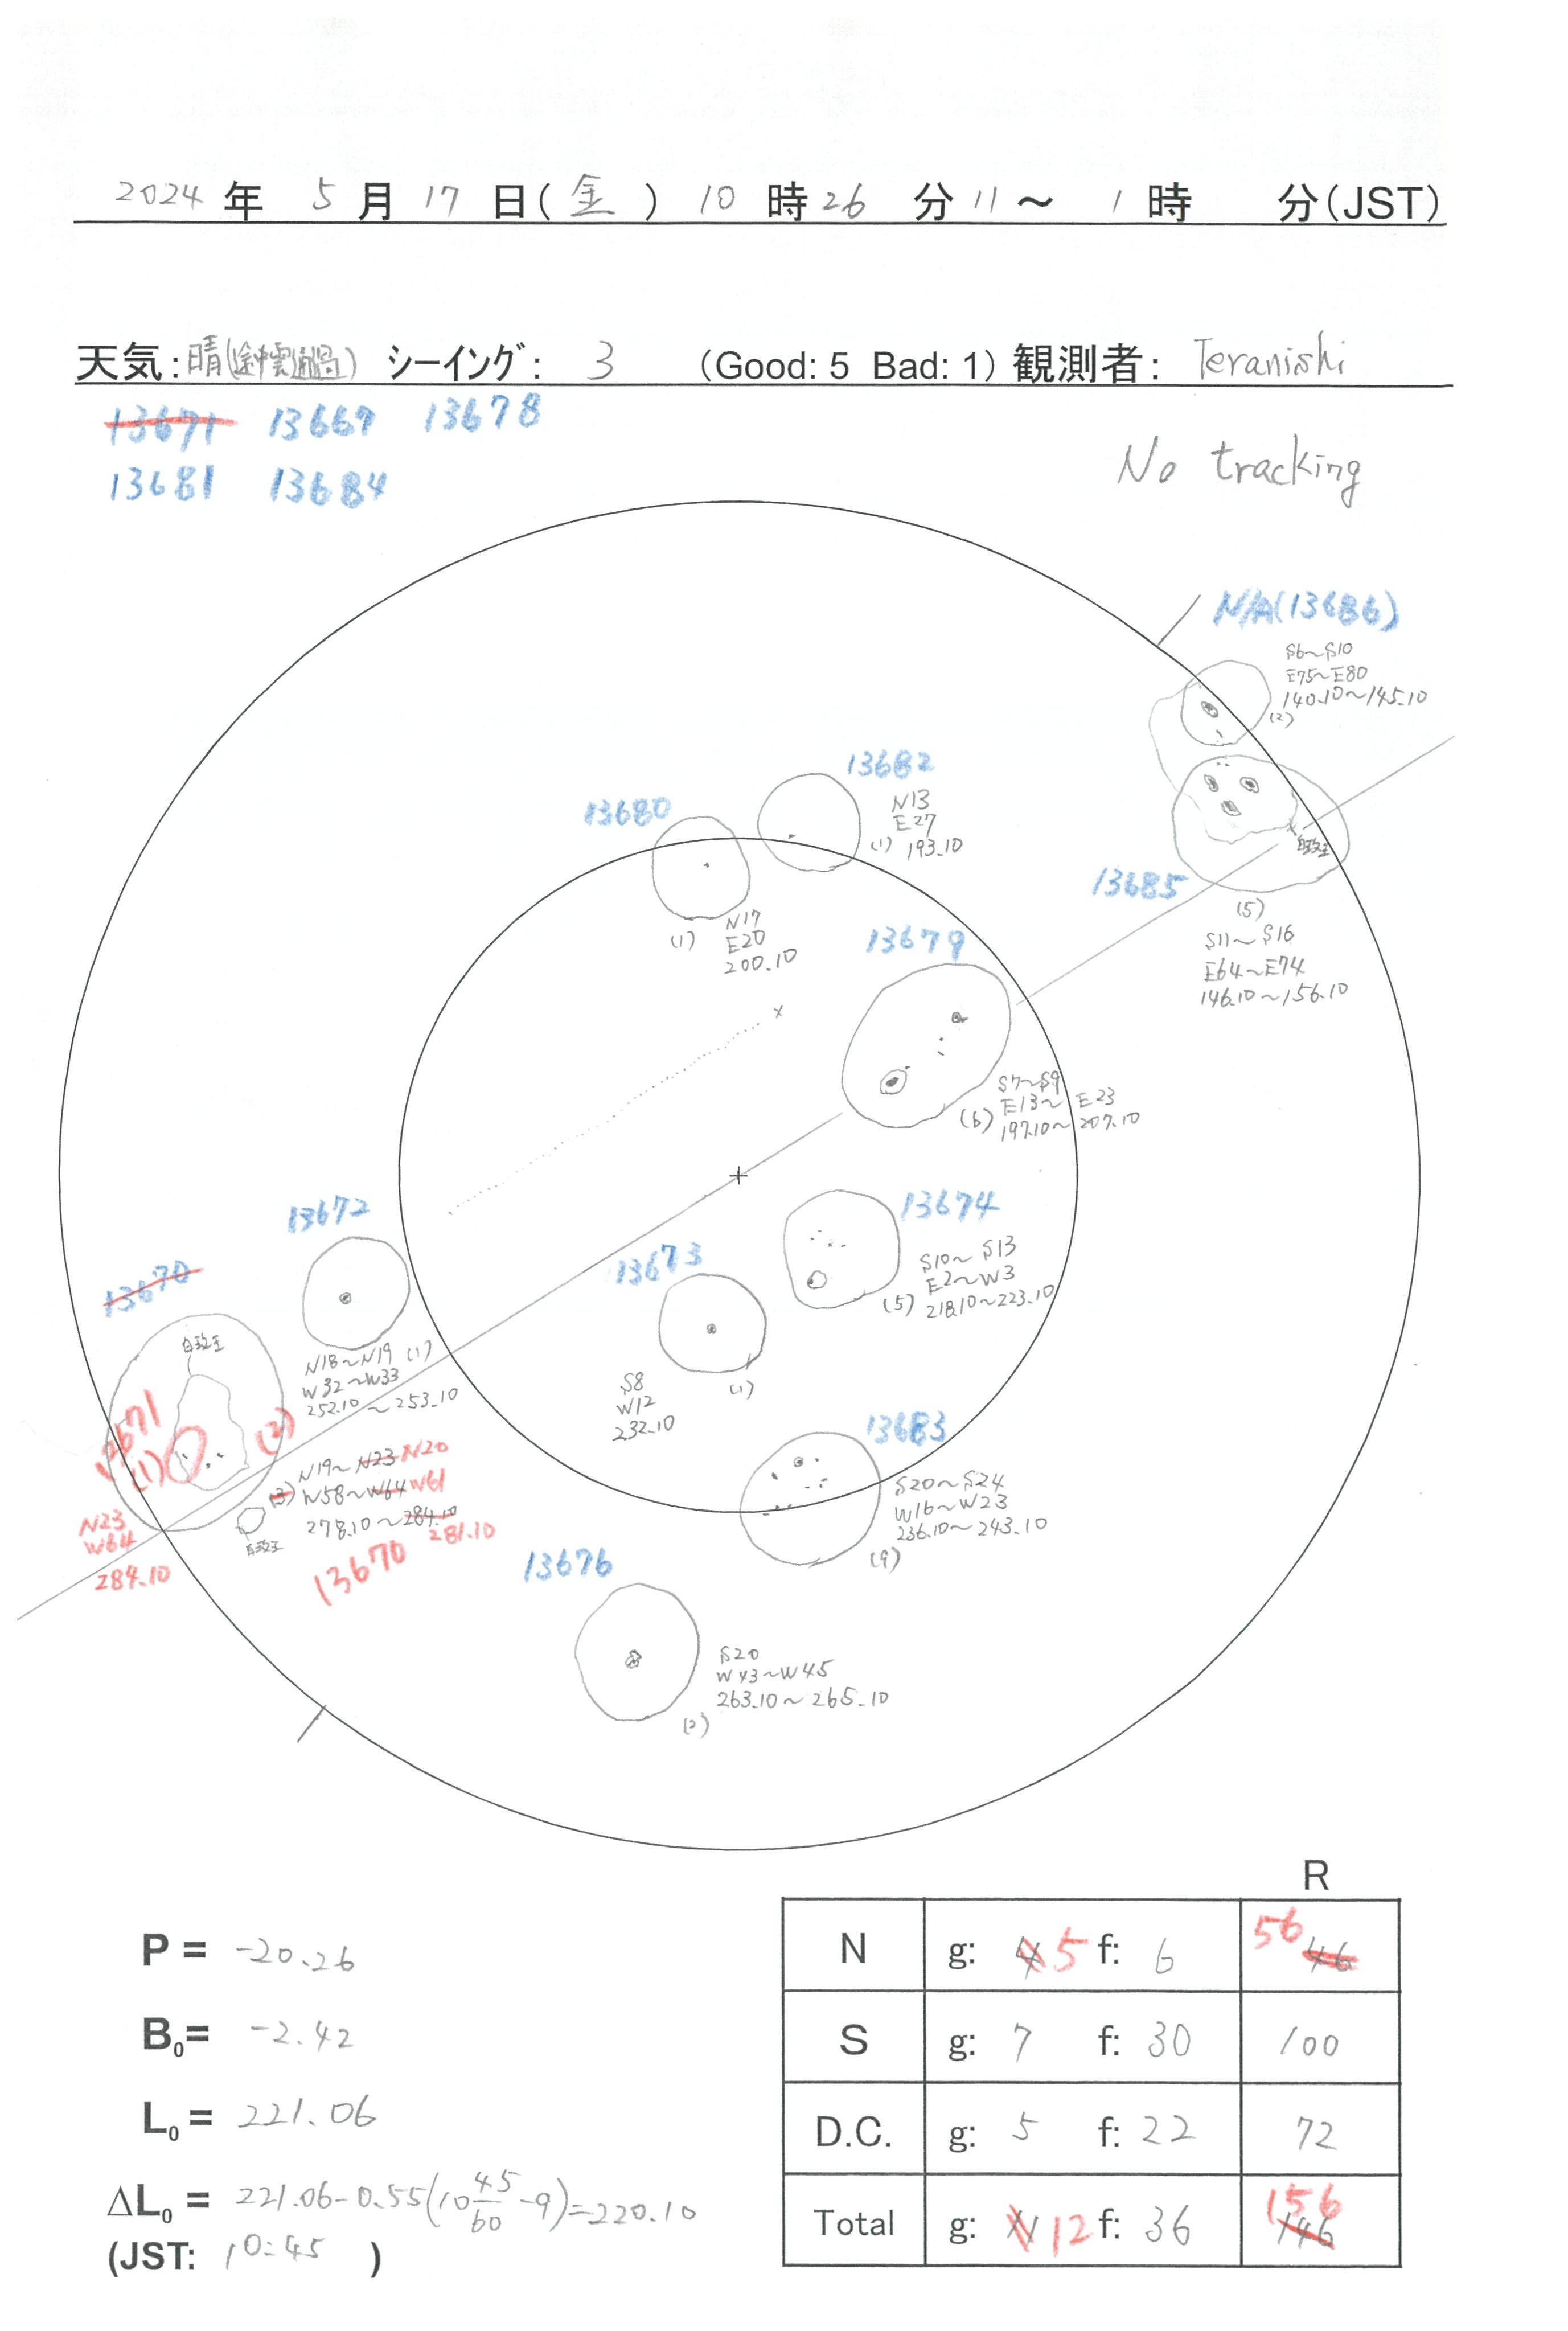 2024 年 5 月 17 日(金) 10 時 26 分 11 ~ 1 時 分(JST)
天気: 晴(途中雲通過) シーイング: 3 (Good: 5 Bad: 1) 観測者: Teranishi
13671 13667 13678
13681 13684
No tracking
N/A(13686)
S6~S10
E75~E80
140.10~145.10
(2)
13682
N13
E27
(1) 193.10
13680
(1) N17
E20
200.10
白斑
13685
(5)
S11~S16
E64~E74
146.10~156.10
13679
S7~S9
E13~E23
(6) 197.10~207.10
13672
N18~N19 (1)
W32~W33
252.10~253.10
13674
S10~S13
E2~W3
(5) 218.10~223.10
13673
S8
W12
232.10
(1)
13670
白斑
13671
(1)
(2)
N19~N23 N20
(3) W58~W64 W61
278.10~284.10
281.10
13670
白斑
N23
W64
284.10
13683
S20~S24
W16~W23
236.10~243.10
(9)
13676
S20
W43~W45
263.10~265.10
(2)
P = -20.26
B0= -2.42
L0 = 221.06
ΔL0 = 221.06-0.55(10 45/60 -9)=220.10
(JST: 10:45 )
R
N g: 4 5 f: 6 56 46
S g: 7 f: 30 100
D.C. g: 5 f: 22 72
Total g: 11 12 f: 36 156 146